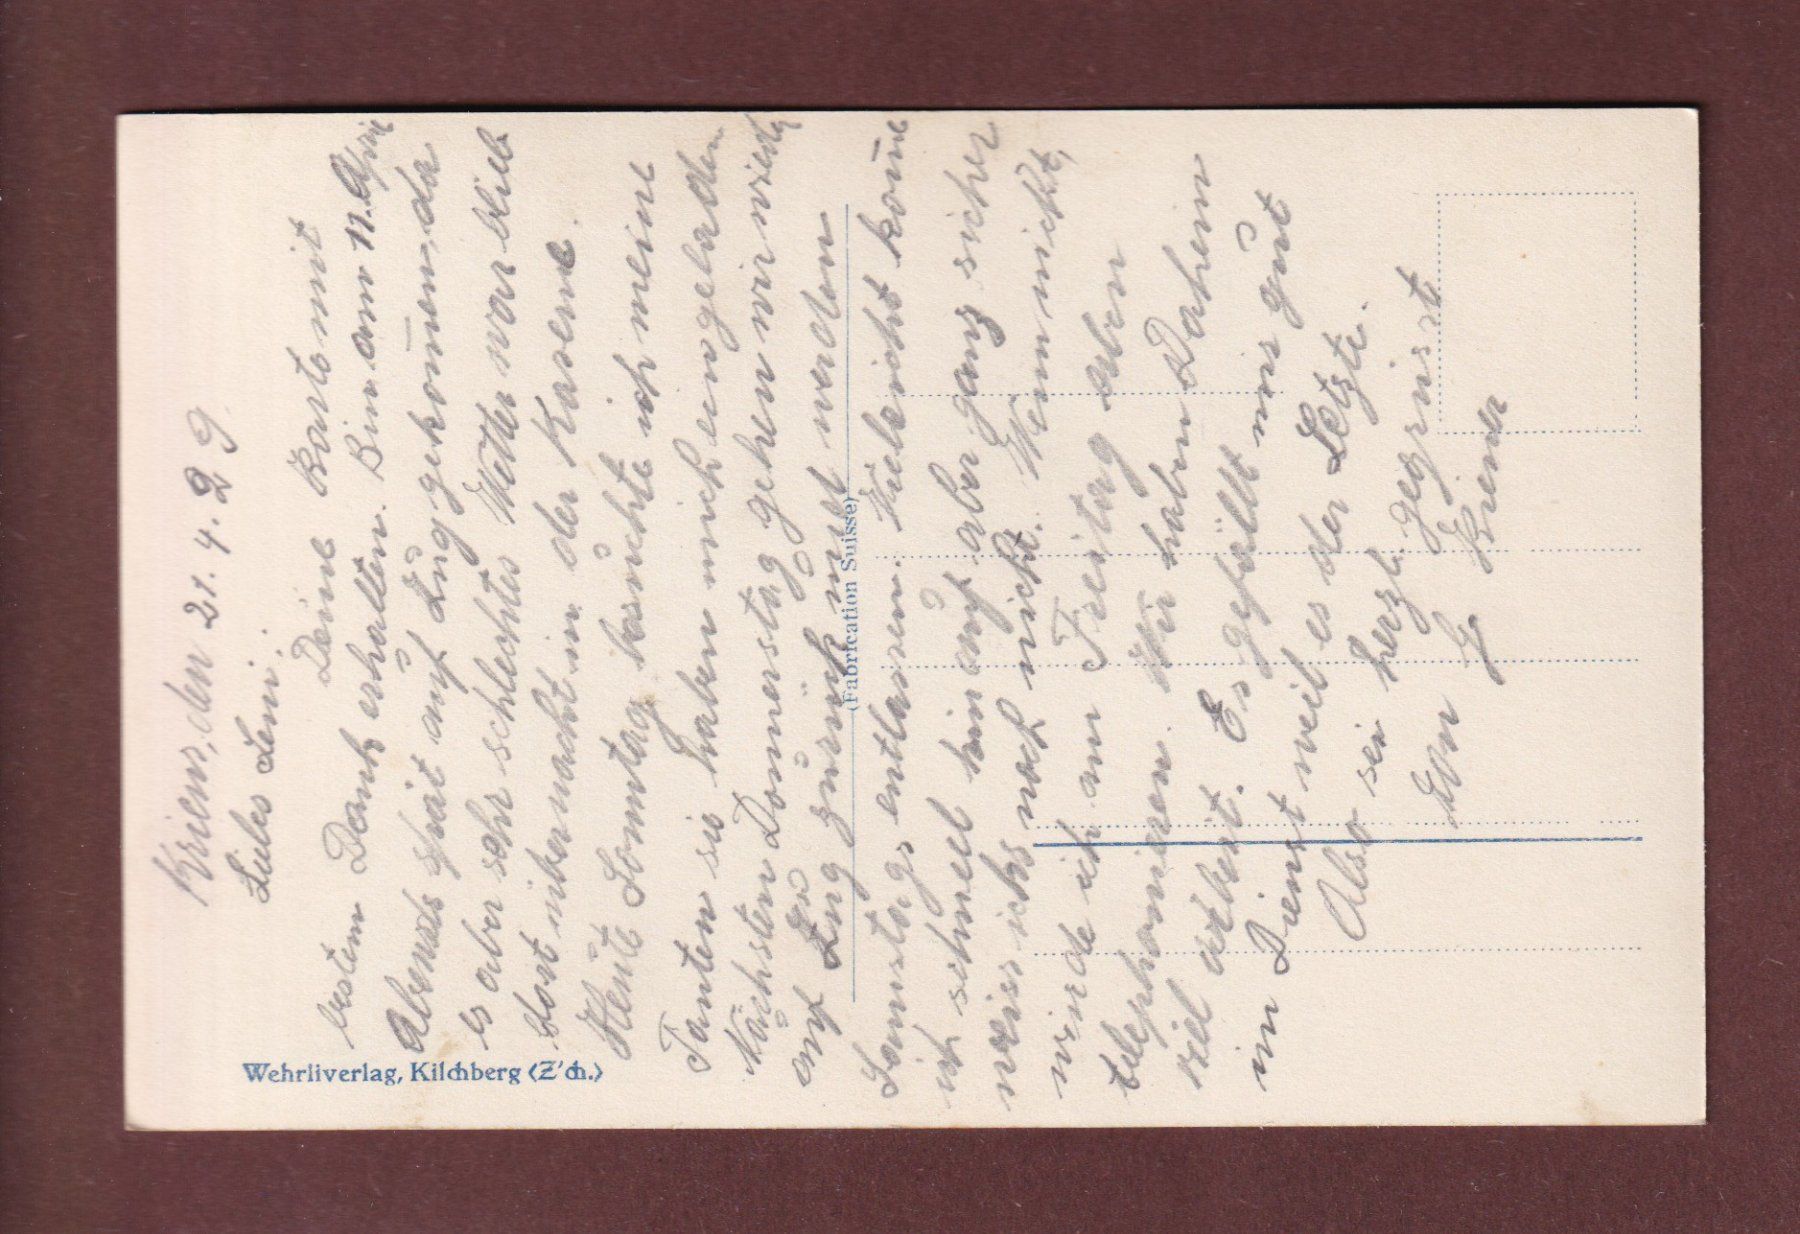 Kriens, den 21. 4. 29
Liebes Leni.
Deine Karte mit
bestem Dank erhalten. Bin am 11. April
Abends spät auf Zug gekom̅en, da
es aber sehr schlechtes Wetter war blieb
übernacht in der Kaserne.
Heute Sonntag besuchte ich meine
Tanten sie haben mich eingeladen
Nächsten Don̅erstag gehen wir wieder
auf Zug zurück und werden
Samstags entlassen. Vieleicht kom̅e
ich schnell hinauf aber ganz sicher
weiss ichs noch nicht. Wenn nicht,
würde ich am Freitag aben
telephonieren. Wir haben Daheim
viel arbeit. Es gefällt mir gut
im Dienst weil es der Letzte.
Also sei herzl. gegrüsst
von
Wehrliverlag, Kilchberg (Z'ch.)
(Fabrication Suisse)